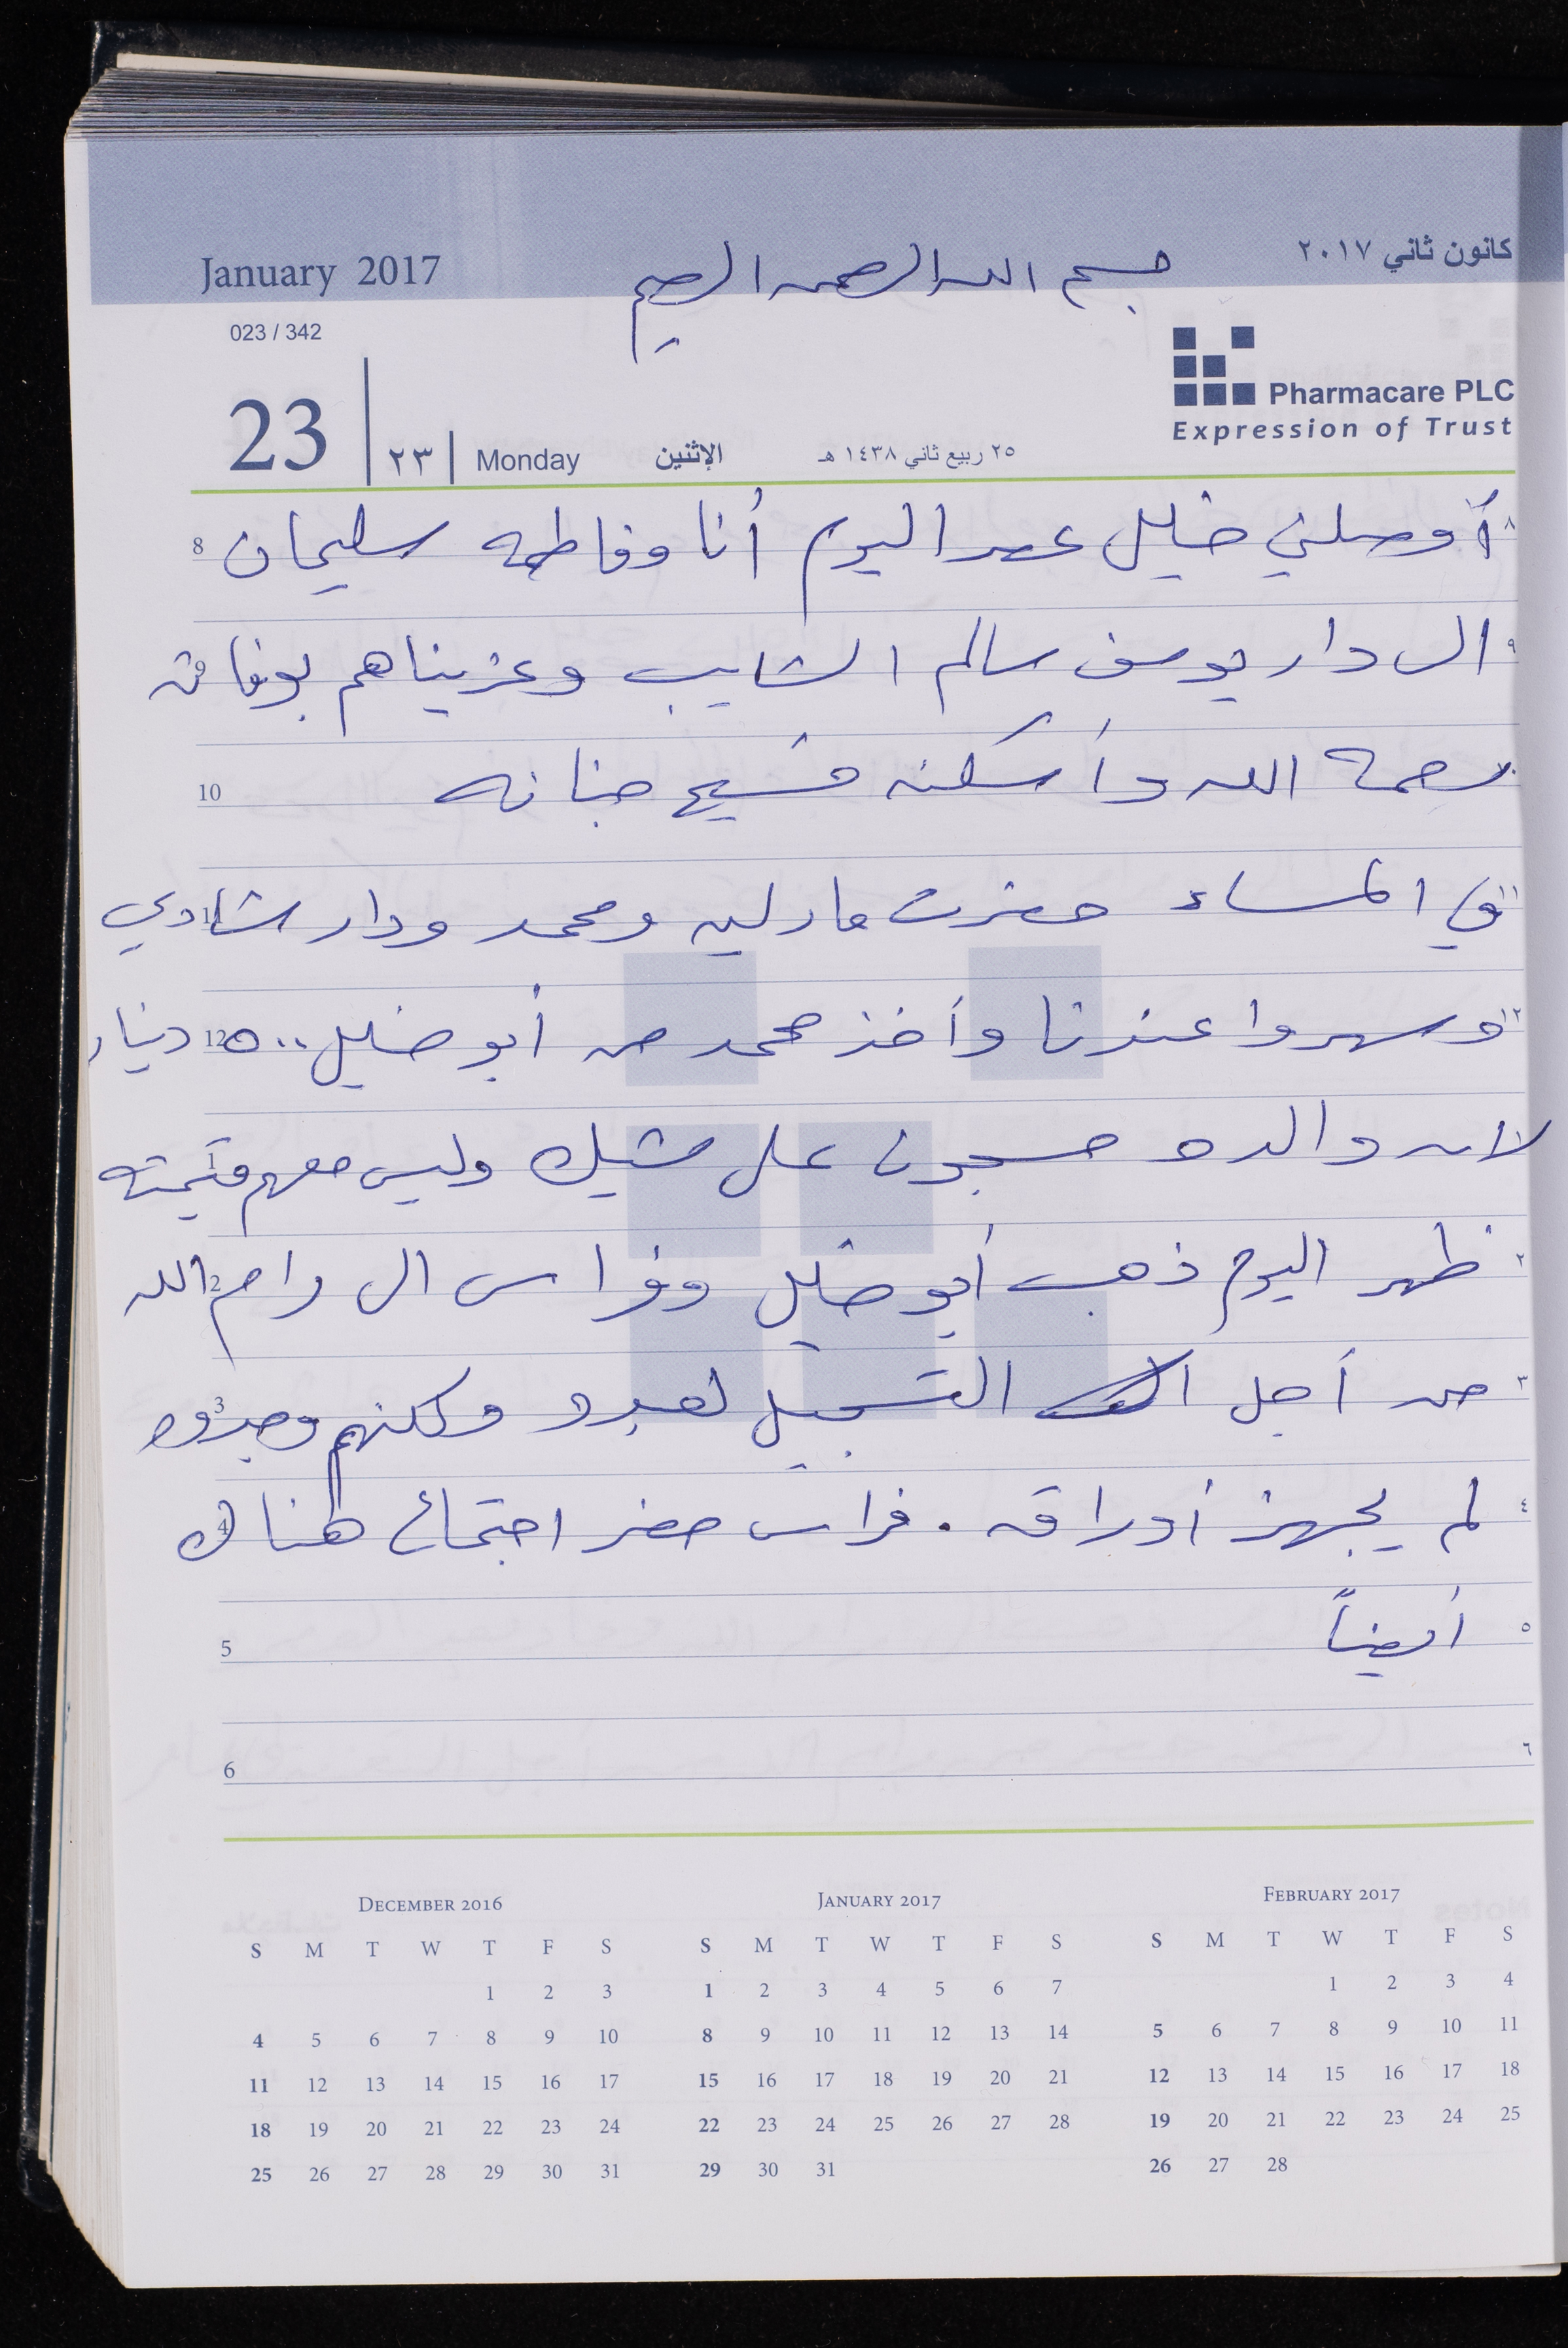 January 2017
بسم الله الرحمن الرحيم
كانون ثاني ٢٠١٧
023 / 342
Pharmacare PLC
Expression of Trust
23 | ٢٣ | Monday الإثنين ٢٥ ربيع ثاني ١٤٣٨ هـ
٨ أوصلني خليل عصر اليوم أنا وفاطمه سليمان 8
٩ الى دار يوسف سالم الشايب وعزيناهم بوفاته 9
١٠ رحمة الله وأسكنه فسيح جنانه 10
١١ في المساء حضرت مادلين ومحمد ودار شادي 11
١٢ وسهروا عندنا وأخذ محمد من أبو خليل ٥٠٠ دينار 12
١ لان والده مسجون على شيك وليس معهم قيمته 1
٢ ظهر اليوم ذهب أبو خليل وفراس الى رام الله 2
٣ من أجل التسجيل لعبدو ولكنهم وجدوه 3
٤ لم يجهز أوراقه . فراس حضر اجتماع هناك 4
٥ أيضاً 5
٦ 6
DECEMBER 2016
S M T W T F S
1 2 3
4 5 6 7 8 9 10
11 12 13 14 15 16 17
18 19 20 21 22 23 24
25 26 27 28 29 30 31
JANUARY 2017
S M T W T F S
1 2 3 4 5 6 7
8 9 10 11 12 13 14
15 16 17 18 19 20 21
22 23 24 25 26 27 28
29 30 31
FEBRUARY 2017
S M T W T F S
1 2 3 4
5 6 7 8 9 10 11
12 13 14 15 16 17 18
19 20 21 22 23 24 25
26 27 28